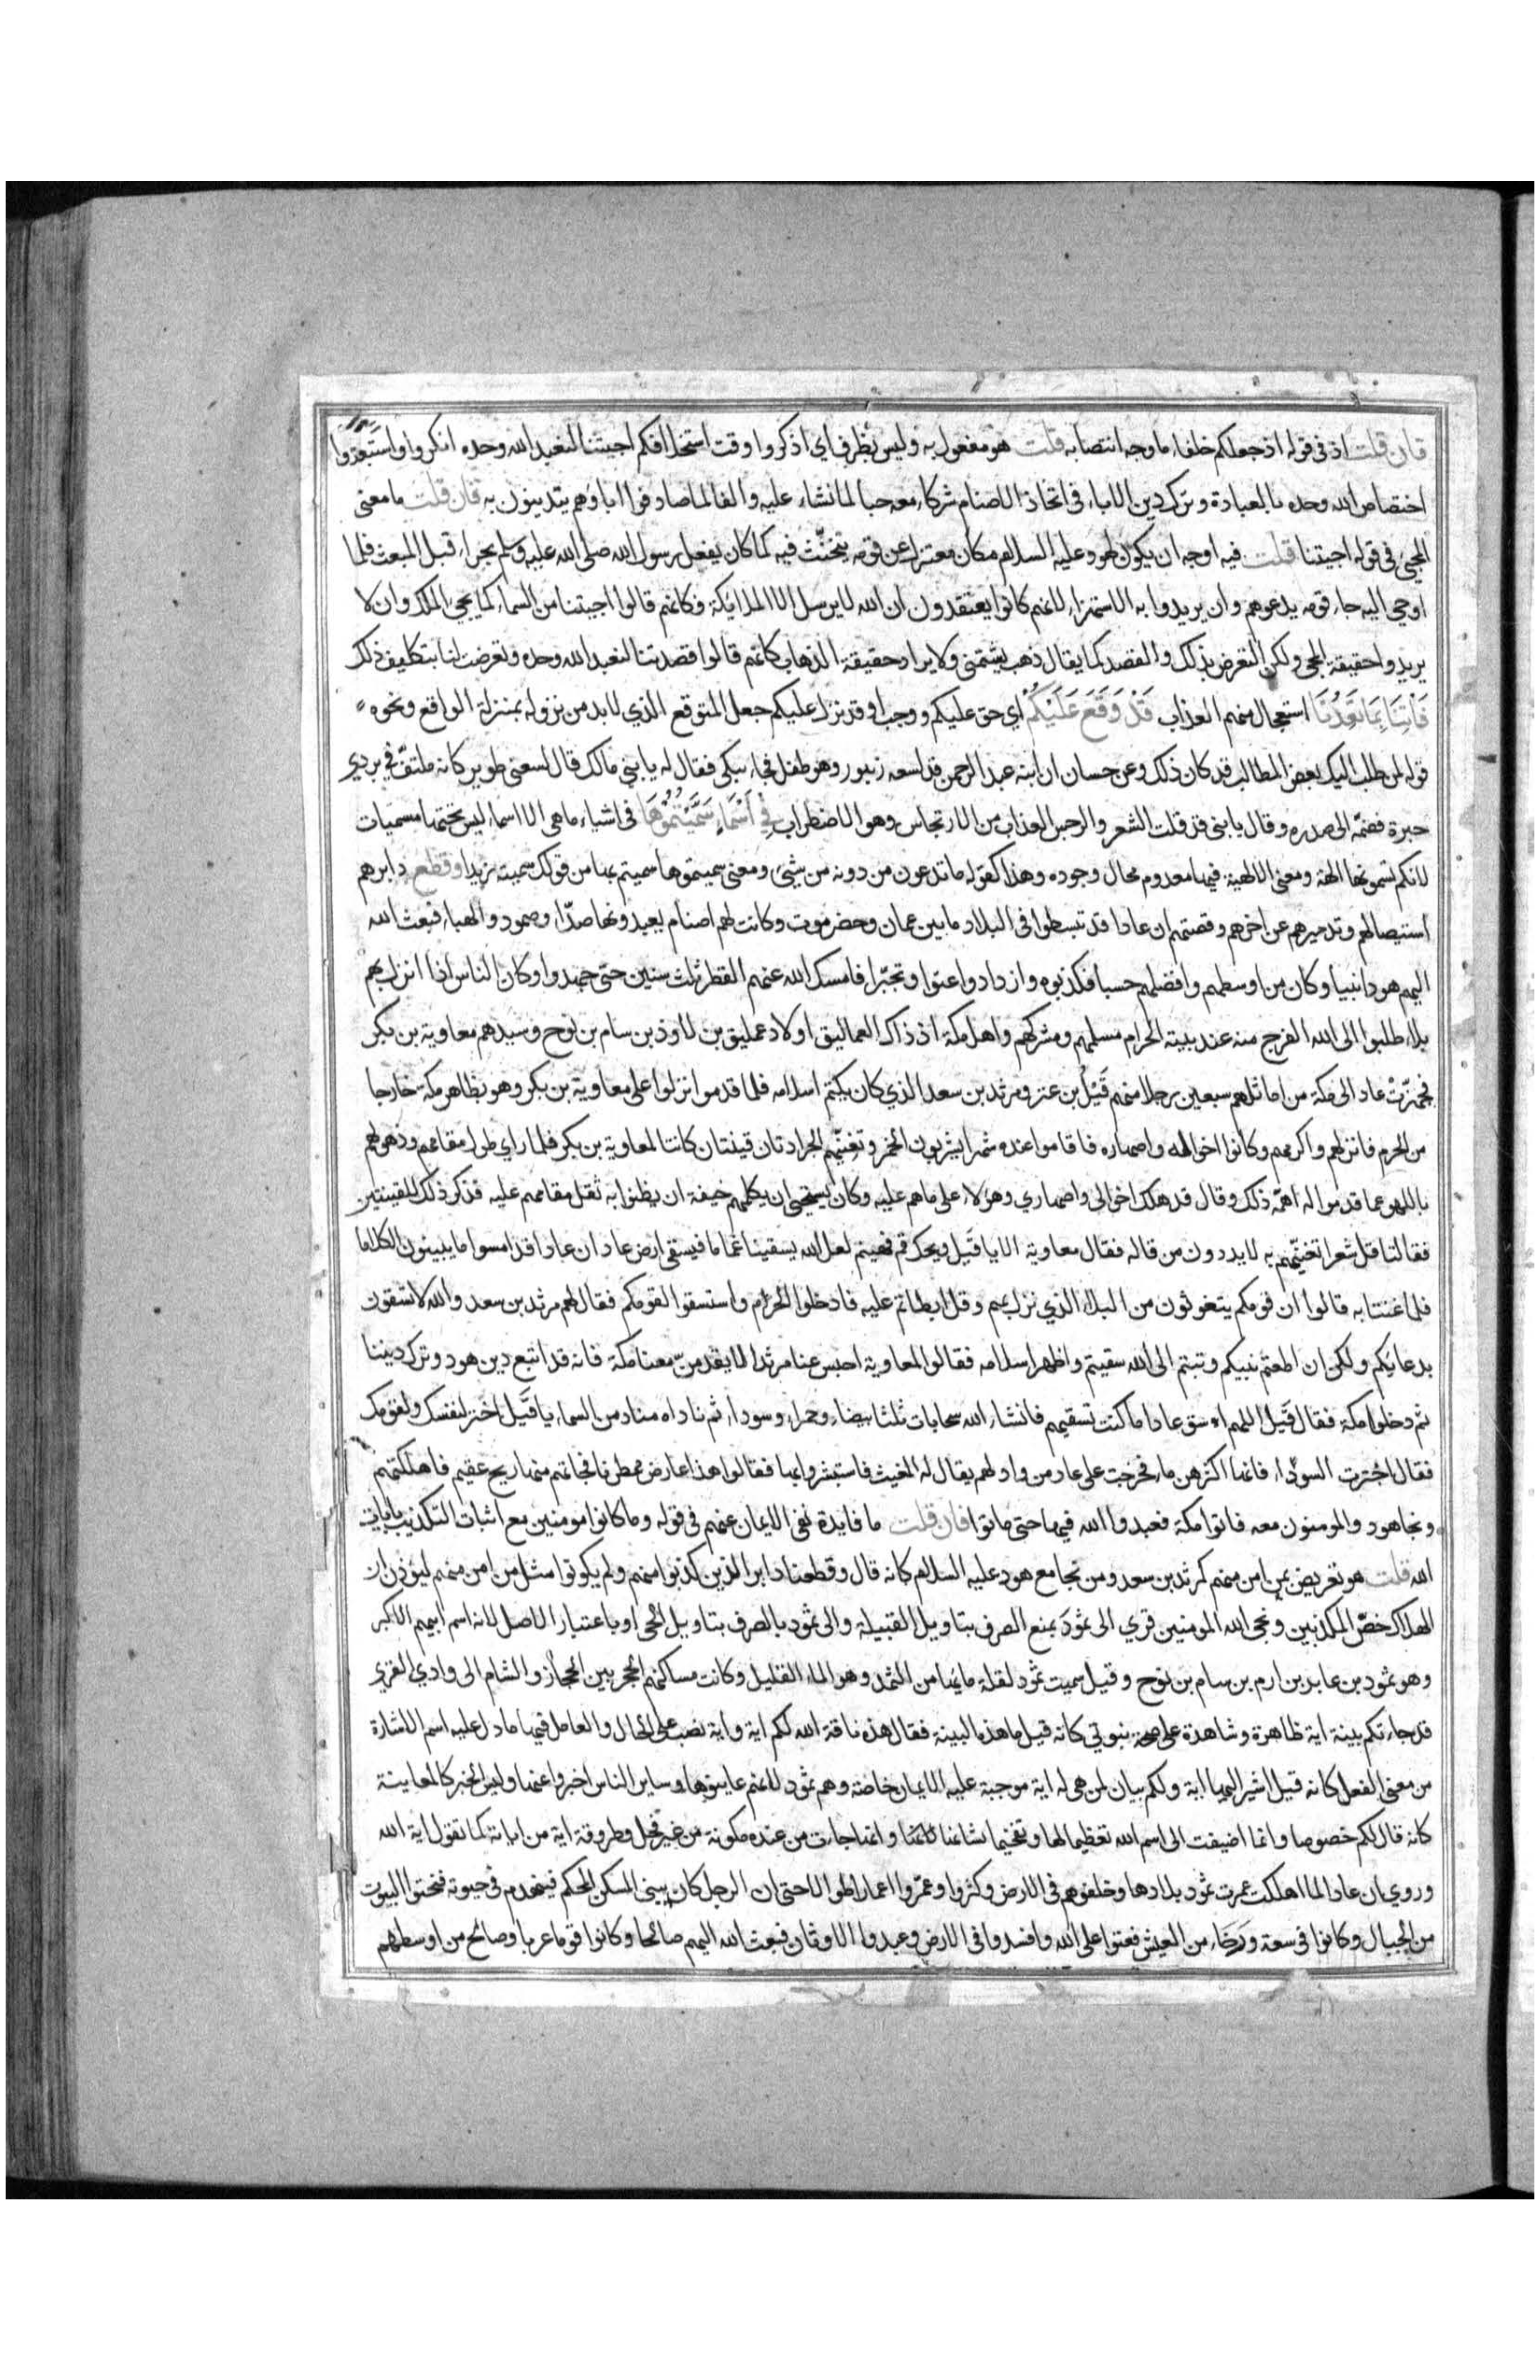 فان قلت اذ فى قوله اذ جعلكم خلفاء ما وجه انتصابه قلت هو مفعول به وليس بظرف اي اذكروا وقت استخلافكم اجئتنا لنعبد الله وحده انكروا واستبعدوا
اختصاص الله وحده بالعبادة وترك دين الاباء فى اتخاذ الاصنام شركاء معه حبا لما نشاء عليه والفا لما صادفوا اباوهم يتدينون به فان قلت ما معنى
المجيئ فى قوله اجيتنا قلت فيه اوجه ان يكون لهود عليه السلام مكان معتزل عن قومه يتحنّث فيه كما كان يفعل رسول الله صلى الله عليه وسلم بحراء قبل المبعث فلما
اوحي اليه جاء قومه يدعوهم وان يريدوا به الاستهزاء لانهم كانوا يعتقدون ان الله لا يرسل الا الملايكة فكانهم قالوا اجيتنا من السماء كما يجيء الملك وان لا
يريدوا حقيقة المجى ولكن التعرض بذلك والقصد كما يقال ذهب يشتمني ولا يراد حقيقة الذهاب كانهم قالوا اقصدتنا لنعبد الله وحده وتعرضت لنا بتكليف ذلك
فَاْتِنَا بِمَا تَعِدُنَا استعجال منهم العذاب قَدْ وَقَعَ عَلَيْكُمْ اي حق عليكم ووجب او قد نزل عليكم جعل المتوقع الذي لا بد من نزوله بمنزلة الواقع ونحوه
قوله لمن طلب اليك بعض المطالب قد كان ذلك وعن حسان ان ابنه عبد الرحمن قد لسعه زنبور وهو طفل فجاء يبكى فقال له يا بني مالك قال لسعني طوير كانه ملتفّ في بردي
حبرة فضمّه الى صدره وقال يا بنى قد قلت الشعر والرجس العذاب من الارتجاس وهو الاضطراب فِي أَسْمَاءٍ سَمَّيْتُمُوهَا فى اشياء ما هى الا اسماء ليس تحتها مسميات
لانكم تسمونها الهة ومعنى الالهية فيها معدوم محال وجوده وهذا كقوله ما تدعون من دونه من شيئ ومعنى سميتموها سميتم بها من قولك سميته زيدا وقطع دابرهم
استيصالهم وتدميرهم عن اخرهم وقصتهم ان عادا قد تبسطوا فى البلاد ما بين عمان وحضرموت وكانت لهم اصنام يعبدونها صدّاء وصمود والهباء فبعث الله
اليهم هودا نبيا وكان من اوسطهم وافضلهم حسبا فكذبوه وازدادوا عتوا وتجبّرا فامسك الله عنهم القطر ثلث سنين حتى جهدوا وكان الناس اذا انزل بهم
بلاء طلبوا الى الله الفرج منه عند بيته الحرام مسلمهم ومشركهم واهل مكة اذ ذاك العماليق اولاد عمليق بن لاوذ بن سام بن نوح وسيدهم معاوية بن بكر
فجهزّتْ عاد الى مكة من اماثلهم سبعين رجلا منهم قَيْل بن عنز ومرثد بن سعد الذي كان يكتم اسلامه فلما قدموا نزلوا على معاوية بن بكر وهو بظاهر مكة خارجا
من الحرم فانزلهم واكرمهم وكانوا اخواله واصهاره فاقاموا عنده شهرا يشربون الخمر وتغنيّهم الجرادتان قينتان كانتا لمعاوية بن بكر فلما راي طول مقامهم وذهولهم
باللهو عما قدموا له اهمّه ذلك وقال قد هلك اخوالى واصهاري وهؤلاء على ما هم عليه وكان يستحيى ان يكلمهم خيفة ان يظنوا به ثقل مقامهم عليه فذكر ذلك للقينتين
فقالتا قل شعرا تغنيّهم به لا يدرون من قاله فقال معاوية الا يا قَيل ويحك قم فهينم لعل الله يسقينا غماما فيسقى ارض عاد ان عادا قد امسوا ما يبينون الكلاما
فلما غنتا به قالوا ان قومكم يتغوثون من البلاء الذي نزل بهم وقد ابطاتم عليه فادخلوا الحرم واستسقوا لقومكم فقال لهم مرثد بن سعد والله لا تسقون
بدعايكم ولكن ان اطعتم نبيكم وتبتم الى الله سقيتم واظهر اسلامه فقالوا لمعاوية احبس عنا مرثدا لا يقدمن معنا مكة فانه قد اتبع دين هود وترك ديننا
ثم دخلوا مكة فقال قَيل اللهم اسق عادا ما كنت تسقيهم فانشاء الله سحابات ثلثا بيضاء وحمراء وسوداء ثم ناداه مناد من السماء يا قَيل اختر لنفسك ولقومك
فقال اخترت السوداء فانها اكثرهن ماء فخرجت على عاد من واد لهم يقال له المغيث فاستبشروا بها فقالوا هذا عارض ممطرنا فجاتهم منها ريح عقيم فاهلكتهم
ونجا هود والمومنون معه فاتوا مكة فعبدوا الله فيها حتى ماتوا فان قلت ما فايدة نفى الايمان عنهم فى قوله وما كانوا مومنين مع اثبات التكذيب بايات
الله قلت هو تعريض بمن امن منهم كمرثد بن سعد ومن نجا مع هود عليه السلام كانه قال وقطعنا دابر الذين كذبوا منهم ولم يكونوا مثل من امن منهم ليؤذن ان
الهلاك خصّ المكذبين ونجى الله المومنين قري الى ثمودَ بمنع الصرف بتاويل القبيلة والى ثمود بالصرف بتاويل الحى او باعتبار الاصل لانه اسم ابيهم الاكبر
وهو ثمود بن عابد بن ارم بن سام بن نوح وقيل سميت ثمود لقلة مايها من الثمد وهو الماء القليل وكانت مساكنهم الحجر بين الحجاز والشام الى وادي القري
قد جاءتكم بينة اية ظاهرة وشاهدة على صحة نبوتي كانه قيل ما هذه البينة فقال هذه ناقة الله لكم اية واية نصب على الحال والعامل فيها ما دل عليه اسم الاشارة
من معنى الفعل كانه قيل اشير اليها اية ولكم بيان لمن هى له اية موجبة عليه الايمان خاصة وهم ثمود لانهم عاينوها وساير الناس اخبروا عنها وليس الخبر كالمعاينة
كانه قال لكم خصوصا وانما اضيفت الى اسم الله تعظيما لها وتفخيما لشانها وانها جاءت من عنده مكونة من غير فحل وطروقة اية من اياته كما تقول اية الله
وروي ان عادا لما اهلكت عمرت ثمود بلادها وخلفوهم فى الارض وكثروا وعمّروا اعمارا طوالا حتى ان الرجل كان يبنى المسكن المحكم فينهدم فى حيوته فنحتوا البيوت
من الجبال وكانوا فى سعة ورخاء من العيش فعتوا على الله وافسدوا فى الارض وعبدوا الاوثان فبعث الله اليهم صالحا وكانوا قوما عربا وصالح من اوسطهم